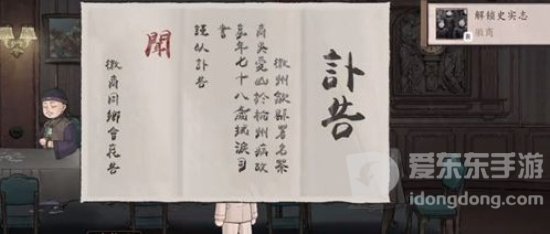 訃告
徽州歙縣署名茶
商吳於杭州病故
享年七十八歲拭淚
書
謹以訃告
聞
徽商同鄉會哀告
解锁史实志
徽商
爱东东手游
idongdong.com